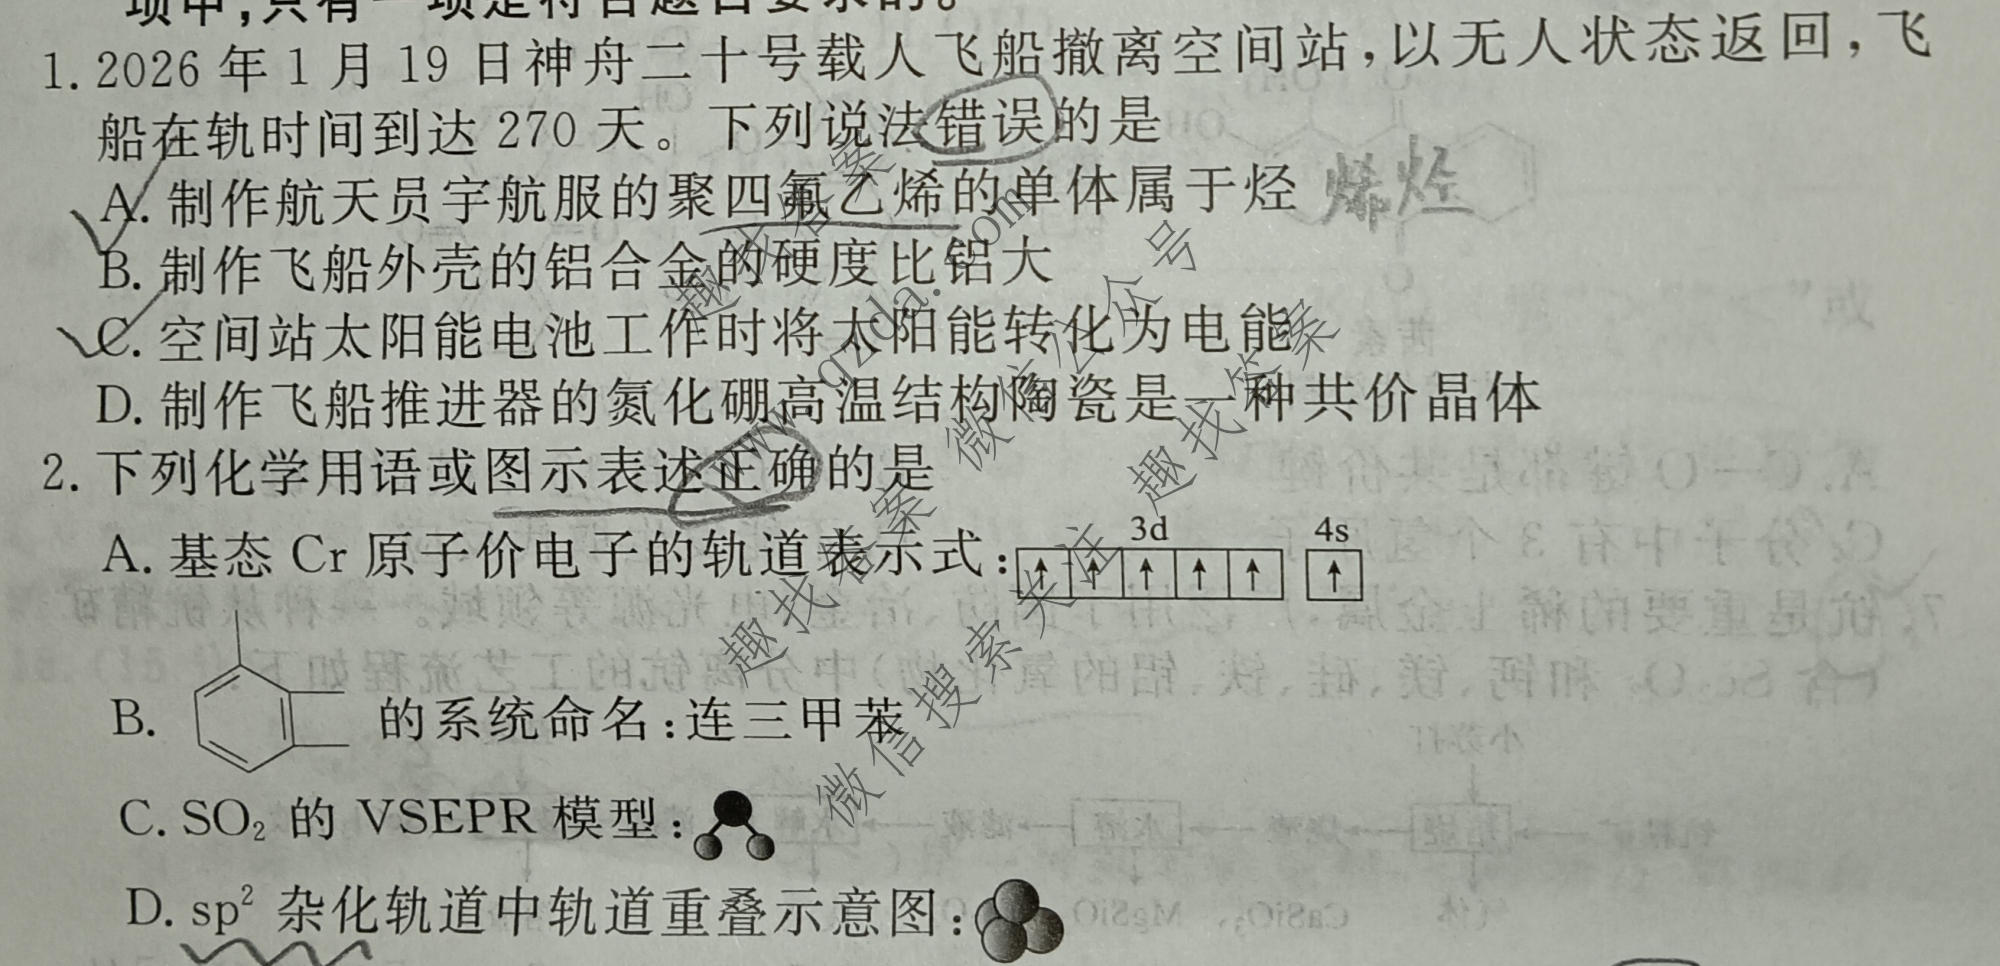 项中,只有一项是符合题目要求的。
1. 2026 年 1 月 19 日神舟二十号载人飞船撤离空间站,以无人状态返回,飞
船在轨时间到达 270 天。下列说法错误的是
A. 制作航天员宇航服的聚四氟乙烯的单体属于烃 烯烃
B. 制作飞船外壳的铝合金的硬度比铝大
C. 空间站太阳能电池工作时将太阳能转化为电能
D. 制作飞船推进器的氮化硼高温结构陶瓷是一种共价晶体
2. 下列化学用语或图示表述正确的是
3d 4s
A. 基态 Cr 原子价电子的轨道表示式: ↑ ↑ ↑ ↑ ↑ ↑
B. 的系统命名:连三甲苯
C. SO₂ 的 VSEPR 模型:
D. sp² 杂化轨道中轨道重叠示意图:
趣找答案
www.qzda.com
微信公众号
趣找答案
趣找答案
微信搜索关注